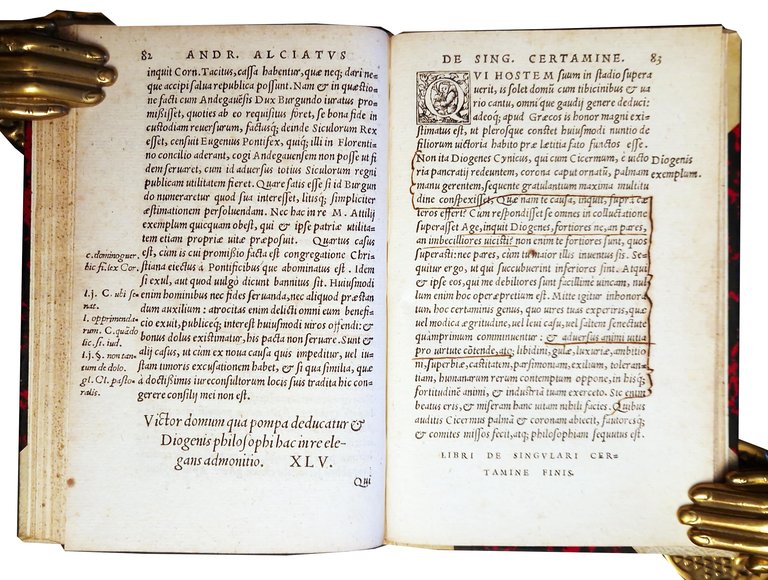 82 ANDR. ALCIATVS
inquit Corn. Tacitus, cassa habentur, quæ neq; dari ne=
que accipi salua republica possunt. Nam & in quæstio=
ne facti cum Andegauēsis Dux Burgundo iuratus pro=
misisset, quoties ab eo requisitus foret, se bona fide in
custodiam reuersurum, factusq; deinde Siculorum Rex
esset, censuit Eugenius Pontifex, quiq; illi in Florenti=
no concilio aderant, cogi Andegauensem non posse ut fi
dem seruaret, cum id aduersus totius Siculorum regni
publicam utilitatem fieret. Quare satis esse si id Burgun
do numeraretur quod sua interesset, litisq; simpliciter
æstimationem persoluendam. Nec hac in re M. Attilij
exemplum quicquam obest, qui & ipse patriæ utilita=
tem etiam propriæ uitæ præposuit. Quartus casus
est, cum is cui promissio facta est congregatione Chri=
stiana eiectus à Pontificibus que abominatus est. Idem
si exul, aut quod uulgò dicunt bannitus sit. Huiusmodi
enim hominibus nec fides seruanda, nec aliquod præstan
dum auxilium: atrocitas enim delicti omni eum benefi=
cio exuit, publiceq; interest huiusmodi uiros offendi: &
bonus dolus existimatur, his pacta non seruare. Sunt &
alij casus, ut cum ex noua causa quis impeditur, uel iu=
stam timoris excusationem habet, & si qua similia, quæ
à doctissimis iureconsultorum locis suis tradita hic con=
gerere consilij mei non est.
c. domino guer.
hic fi. lex Cor.
l.j. C. ubi se=
nat.
l. opprimenda=
rum. C. quādo
lic. si. iud.
l.j. §. non tan=
tum de dolo.
gl. Cl. pasto=
ralis.
Victor domum qua pompa deducatur &
Diogenis philosophi hac in re ele=
gans admonitio. XLV.
Qui
DE SING. CERTAMINE. 83
QVI HOSTEM suum in stadio supera
uerit, is solet domū cum tibicinibus & ua
rio cantu, omni que gaudij genere deduci:
adeoq; apud Græcos is honor magni exi=
stimatus est, ut plerosque constet huiusmodi nuntio de
filiorum uictoria habito præ letitia fato functos esse.
Non ita Diogenes Cynicus, qui cum Cicermum, è uicto
ria pancratij redeuntem, corona caput ornatū, palmam
manu gerentem, sequente gratulantum maxima multitu
dine conspexisset, Quæ nam te causa, inquit, supra cæ
teros effert? Cum respondisset se omnes in colluctatione
superasset Age, inquit Diogenes, fortiores ne, an pares,
an imbecilliores uicisti? non enim te fortiores sunt, quos
superasti: nec pares, cum tu maior illis inuentus sis. Se=
quitur ergo, ut qui succubuerint inferiores sint. Atqui
& ipse eos, qui me debiliores sunt facillimè uincam, nul
lum enim hoc operæpretium est. Mitte igitur inhonora=
tum hoc certaminis genus, quo uires tuas experiris, quæ
uel modica ægritudine, uel leui casu, uel saltem senectute
quàmprimum comminuuntur: & aduersus animi uitia
pro uirtute cōtende, atq; libidini, gulæ, luxuriæ, ambitio
ni, superbiæ, castitatem, parsimoniam, exilium, toleran=
tiam, humanarum rerum contemptum oppone, in hisq;
fortitudinē animi, & industriā tuam exerceto. Sic enim
beatus eris, & miseram hanc uitam nobili facies. Quibus
auditis Cicermus palmā & coronam abiecit, fautoresq;
& comites missos fecit, atq; philosophiam sequutus est.
Diogenis
exemplum.
LIBRI DE SINGVLARI CER=
TAMINE FINIS.